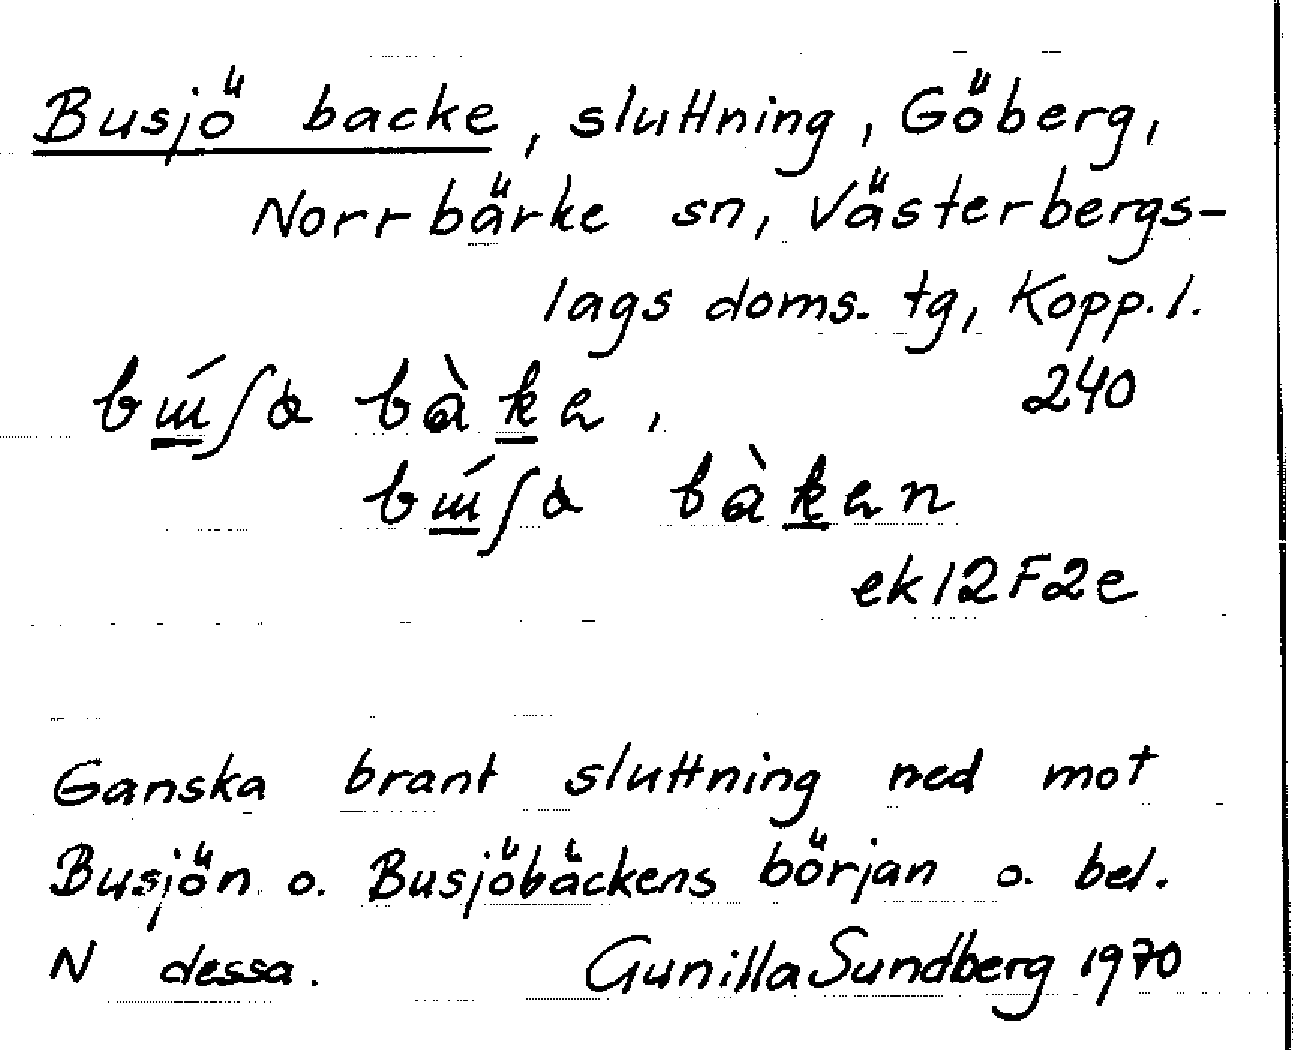 Busjö backe, sluttning, Göberg,
Norrbärke sn, Västerbergs-
lags doms. tg, Kopp. l.
240
ek 12F2e
Ganska brant sluttning ned mot
Busjön o. Busjöbäckens början o. bel.
N dessa. Gunilla Sundberg 1970